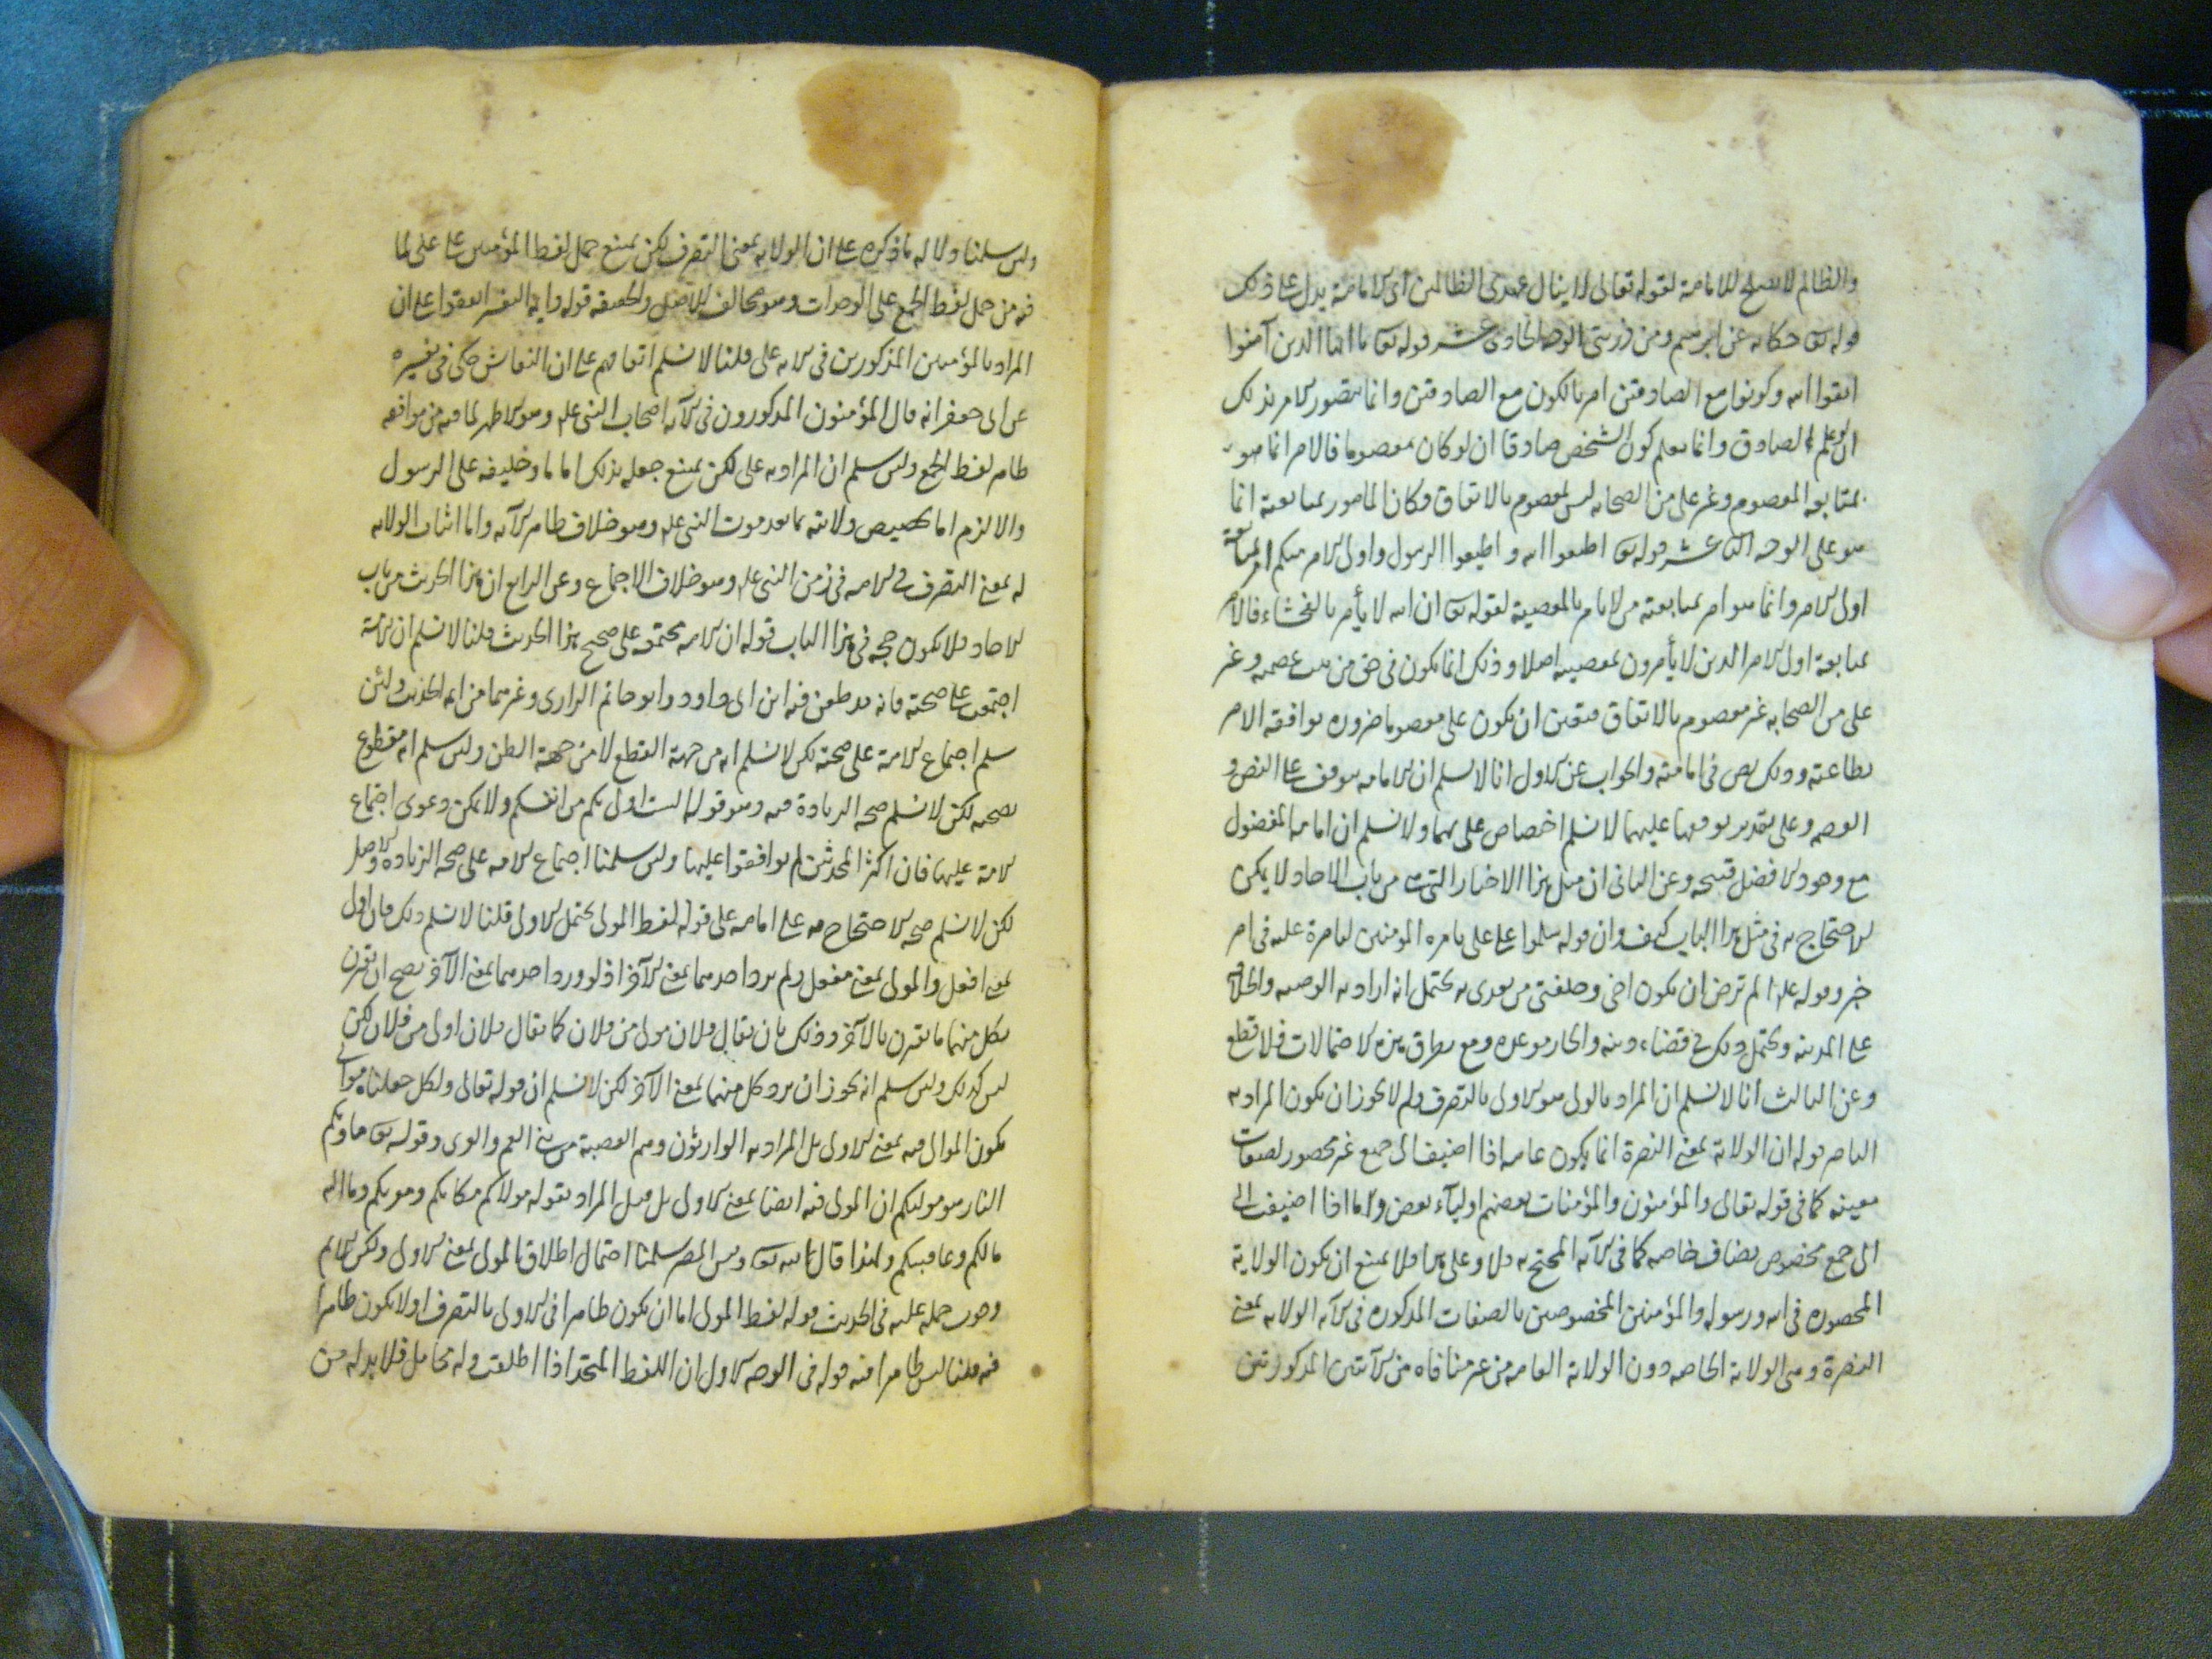 والظالم لا يصلح للامامة لقوله تعالى لا ينال عهدى الظالمين اى الامامة يدل على ذلك
قوله تع حكاية عن ابرهيم ومن ذريتى الوجه الحادى عشر قوله تع يا ايها الذين آمنوا
اتقوا الله وكونوا مع الصادقين امر بالكون مع الصادقين وانما يتصور الامر بذلك
ان لو علم الصادق وانما يعلم كون الشخص صادقا ان لو كان معصوما فالامر انما هو
بمتابعة المعصوم وغير على من الصحابه ليس بمعصوم بالاتفاق وكان المامور بمتابعته انما
هو على الوجه الثانى عشر قوله تع اطيعوا الله واطيعوا الرسول واولى الامر منكم امر بمتابعة
اولى الامر وانما هو امر بمتابعته من لا يامر بالمعصية لقوله تع ان الله لا يأمر بالفحشاء فالامر
بمتابعة اولى الامر الذين لا يأمرون بمعصيه اصلا وذلك انما يكون فى حق من ثبت عصمته وغير
على من الصحابه غير معصوم بالاتفاق فتعين ان يكون على معصوما ضروره موافقة الامر
بطاعته وذلك نص فى امامته والجواب عن الاول انا لا نسلم ان الامامه موقوف على النص و
العصمه وعلى تقدير توقفها عليهما لا نسلم اختصاص على بهما ولا نسلم ان امامة المفضول
مع وجود الافضل قبيحه وعن الثانى ان مثل هذا الاخبار التى هى من باب الاحاد لا يمكن
الاحتجاج به فى مثل هذا الباب كيف وان قوله سلموا على على بامره المؤمنين لبامرة عليه فى امر
خبر وقوله علم الم ترض ان يكون اخى وخليفتى من بعدى به يحتمل انه اراد به الوصيه والخلافه
على المدينه ويحتمل ذلك فى قضاء دينه وانجاز موعده ومع تطرق هذه الاحتمالات فلا قطع
وعن الثالث انا لا نسلم ان المراد بالولى هو الاولى بالتصرف ولم لا يجوز ان يكون المراد به
الناصر قوله ان الولاية بمعنى النصرة انما يكون عامه اذا اضيف الى جمع غير محصور بصفات
معينه كما فى قوله تعالى والمؤمنون والمؤمنات بعضهم اوليآء بعض واما اذا اضيفت الى
الى جمع مخصوص بصفات خاصه كما فى الآيه المحتج به فلا وعلى هذا فلا يمتنع ان يكون الولاية
المحصوره فى الله ورسوله والمؤمنين المخصوصين بالصفات المذكوره فى الآيه الولايه بمعنى
النصرة وهى الولاية الخاصه دون الولاية العامه من غير منافاه من الآيتين المذكورتين
ولئن سلمنا دلاله ما ذكره على ان الولايه بمعنى التصرف لكن يمتنع حمل لفظ المؤمنين على على لما
فيه من حمل لفظ الجمع على الوحدات وهو مخالف للاصل والحقيقه قوله وايمة التفسير اتفقوا على ان
المراد بالمؤمنين المذكورين فى الايه على قلنا لا نسلم اتفاقهم على ان النقاش حكى فى تفسيره
عن ابى جعفر انه قال المؤمنون المذكورون فى الآيه اصحاب النبى علم وهو الاظهر لما فيه من موافقه
ظاهر لفظ الجمع ولئن سلم ان المراد به على لكن يمتنع جعله بذلك اماما وخليفه على الرسول
والا لزم اما تخصيص ولايته بما بعد موت النبى علم وهو خلاف ظاهر الآيه واما اثبات الولايه
له بمعنى التصرف فى الامه فى زمن النبى علم وهو خلاف الاجماع وعن الرابع ان هذا الحديث من باب
الاحاد فلا يكون حجه فى هذا الباب قوله ان الامه مجتمعه على صحيح هذا الحديث قلنا لا نسلم ان الامة
اجتمعت على صحته فانه قد طعن فيه ابن ابى داود وابو حاتم الرازى وغيرهما من ايمه الحديث ولئن
سلم اجتماع الامة على صحته لكن لا نسلم انه من جهة القطع لا من جهة الظن ولئن سلم انه مقطوع
بصحته لكن لا نسلم صحه الزيادة فيه وهو قوله الست اولى بكم من انفسكم ولا يمكن دعوى اجتماع
الامة عليها فان اكثر المحدثين لم يوافقوا عليها ولئن سلمنا اجتماع الامه على صحه الزياده والاصل
لكن لا نسلم صحه الاحتجاج به على امامه على قوله لفظ المولى يحتمل الاولى قلنا لا نسلم ذلك فان اولى
بمعنى افعل والمولى بمعنى مفعل ولم يرد احدهما بمعنى الآخر اذ لو ورد احدهما بمعنى الآخر لصح ان يقرن
بكل منهما ما يقرن بالآخر وذلك بان يقال فلان مولى من فلان كما يقال فلان اولى من فلان لكن
ليس كذلك ولئن سلم انه يجوز ان يرد كل منهما بمعنى الآخر لكن لا نسلم ان قوله تعالى ولكل جعلنا موالى
يكون الموالى فيه بمعنى الاولى بل المراد به الوارثون وهم العصبة من بنى العم والاوى وقوله تع ماويكم
النار هو موليكم ان المولى فيه ايضا بمعنى الاولى بل قيل المراد بقوله مولاكم مكانكم وموئلكم وما اليه
مالكم وعاقبتكم ولهذا قال الله تع وبئس المصير سلمنا احتمال اطلاق المولى بمعنى الاولى ولكن لا نسلم
وجوب حمله عليه فى الحديث قوله لفظ المولى اما ان يكون ظاهرا فى الاولى بالتصرف او لا يكون ظاهرا
فيه قلنا ليس ظاهرا فيه قوله فى الوجه الاول ان اللفظ المتحد اذا اطلقت وله محامل فلا بد له من